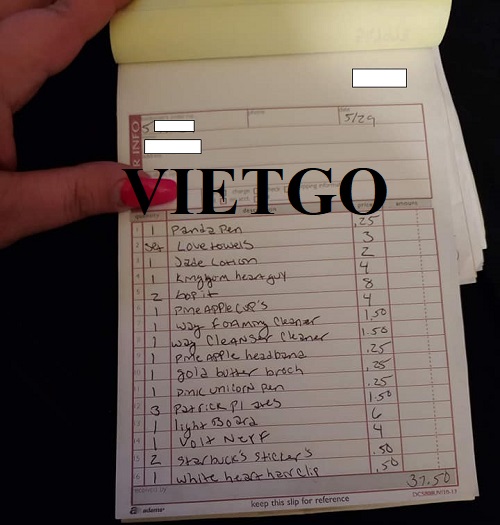 date
5/29
R INFO
VIETGO
price amount
1 1 Panda Pen .25
2 Set Love towels 3
3 1 Jade Lotion 2
4 1 heart guy 4
5 2 bop it 8
6 1 Pineapple Cup's 4
1 way Foaming Cleaner 1.50
1 way Cleanser Cleaner 1.50
9 1 Pineapple headband .25
10 1 gold butter broch .25
11 1 Pink Unicorn pen .25
12 3 Patrick 1.50
13 1 light Board 6
14 1 Volt Nerf 4
15 2 Starbuck's Sticker's .50
16 1 white heart hair clip .50
37.50
keep this slip for reference
adams